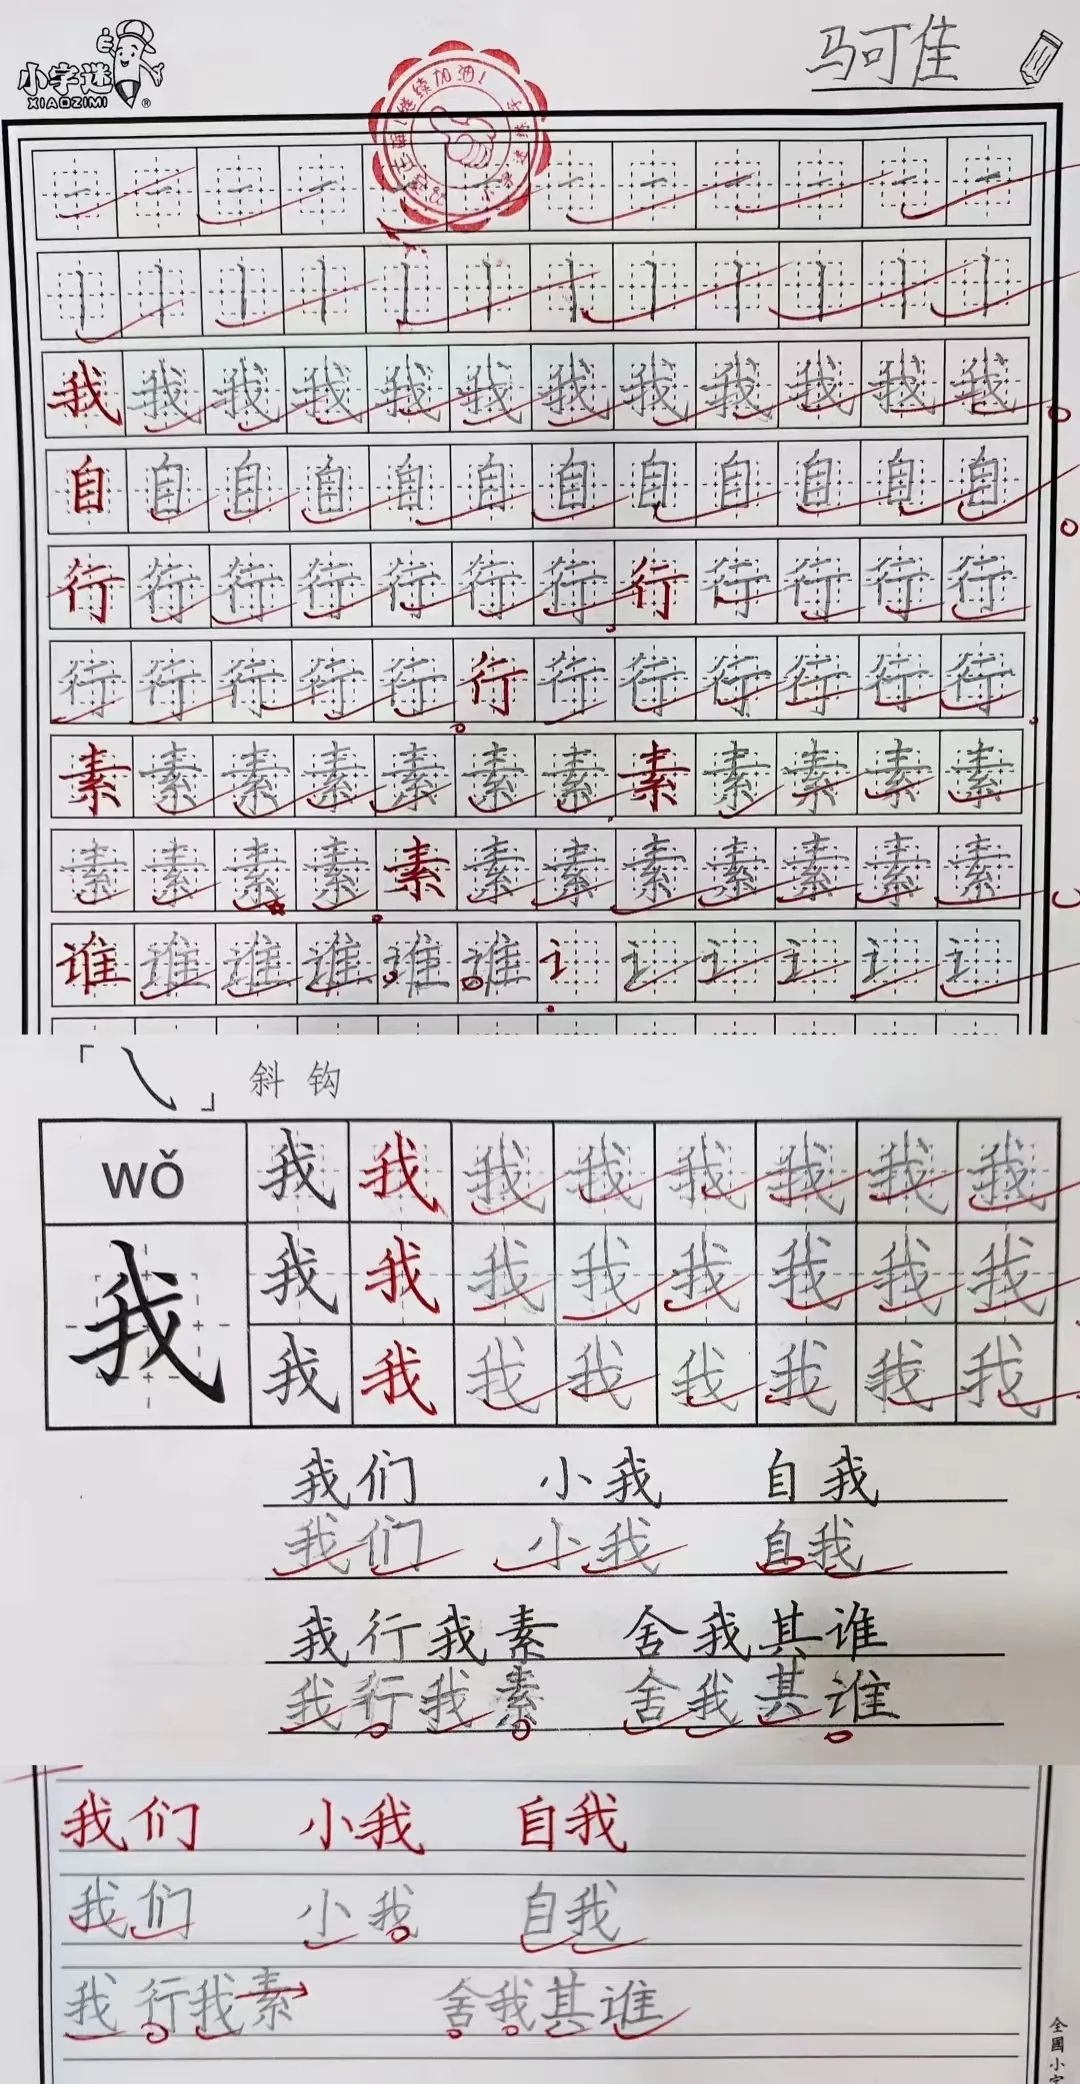 小字迷
XIAOZIMI®
马可佳
继续加油!
一 一 一 一 一 一 一 一 一 一 一 一
丨 丨 丨 丨 丨 丨 丨 丨 丨 丨 丨 丨
我 我 我 我 我 我 我 我 我 我 我 我
自 自 自 自 自 自 自 自 自 自 自 自
行 行 行 行 行 行 行 行 行 行 行 行
行 行 行 行 行 行 行 行 行 行 行 行
素 素 素 素 素 素 素 素 素 素 素 素
素 素 素 素 素 素 素 素 素 素 素 素
谁 谁 谁 谁 谁 谁 讠 讠 讠 讠 讠 讠
「㇂」 斜 钩
wǒ 我 我 我 我 我 我 我 我
我 我 我 我 我 我 我 我 我
我 我 我 我 我 我 我 我
我们 小我 自我
我们 小我 自我
我行我素 舍我其谁
我行我素 舍我其谁
我们 小我 自我
我们 小我 自我
我行我素 舍我其谁
全國小字